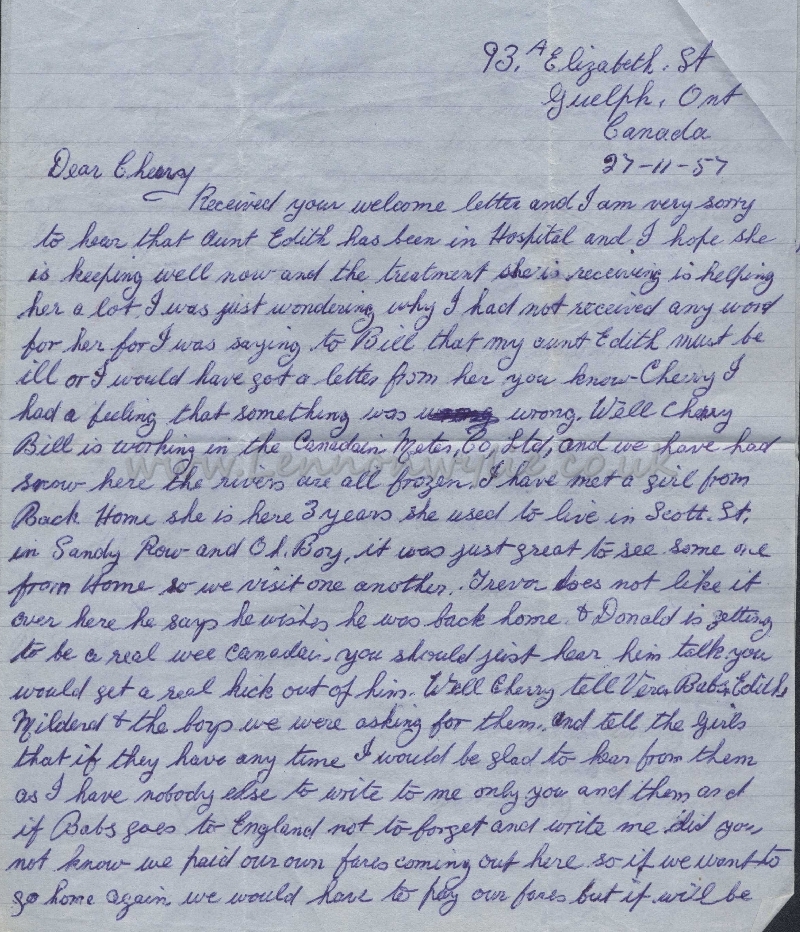 93.A Elizabeth. St
Guelph, Ont
Canada
27-11-57
Dear Cherry
Received your welcome letter and I am very sorry
to hear that Aunt Edith has been in Hospital and I hope she
is keeping well now and the treatment she is receiving is helping
her a lot I was just wondering why I had not received any word
for her for I was saying to Bill that my aunt Edith must be
ill or I would have got a letter from her you know Cherry I
had a feeling that something was wrong. Well Cherry
Bill is working in the Canadain Co, Ltd, and we have had
snow here the rivers are all frozen. I have met a girl from
Back Home she is here 3 years she used to live in Scott. St.
in Sandy Row and Oh. Boy, it was just great to see some one
from Home so we visit one another. Trevor does not like it
over here he says he wishes he was back home. & Donald is getting
to be a real wee canadain. you should just hear him talk you
would get a real kick out of him. Well Cherry tell Vera Babs, Edith,
Milderd & the boys we were asking for them. and tell the girls
that if they have any time I would be glad to hear from them
as I have nobody else to write to me only you and them and
if Babs goes to England not to forget and write me did you
not know we paid our own fares coming out here so if we want to
go home again we would have to pay our fares but it will be
www.lennonwylie.co.uk